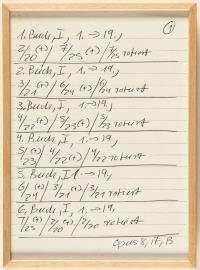 ①
1. Buch, I, 1. → 19,
2/20 (+) / 7/25 (+) / 7/25 rotiert
2. Buch, I, 1. → 19,
3/21 (+) / 6/24 (+) / 6/24 rotiert
3. Buch, I, 1. → 19,
4/22 (+) / 5/23 (+) / 5/23 rotiert
4. Buch, I, 1. → 19,
5/23 (+) / 4/22 (+) / 4/22 rotiert
5. Buch, I 1. → 19,
6/24 (+) / 3/21 (+) / 3/21 rotiert
6. Buch, I, 1. → 19,
7/25 (+) / 2/20 (+) / 2/20 rotiert
Opus 8, 17, B